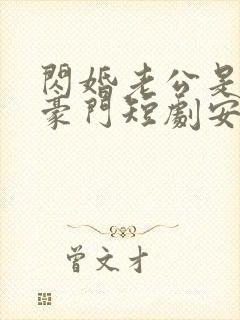 閃婚老公是
豪門短劇安
曾文才